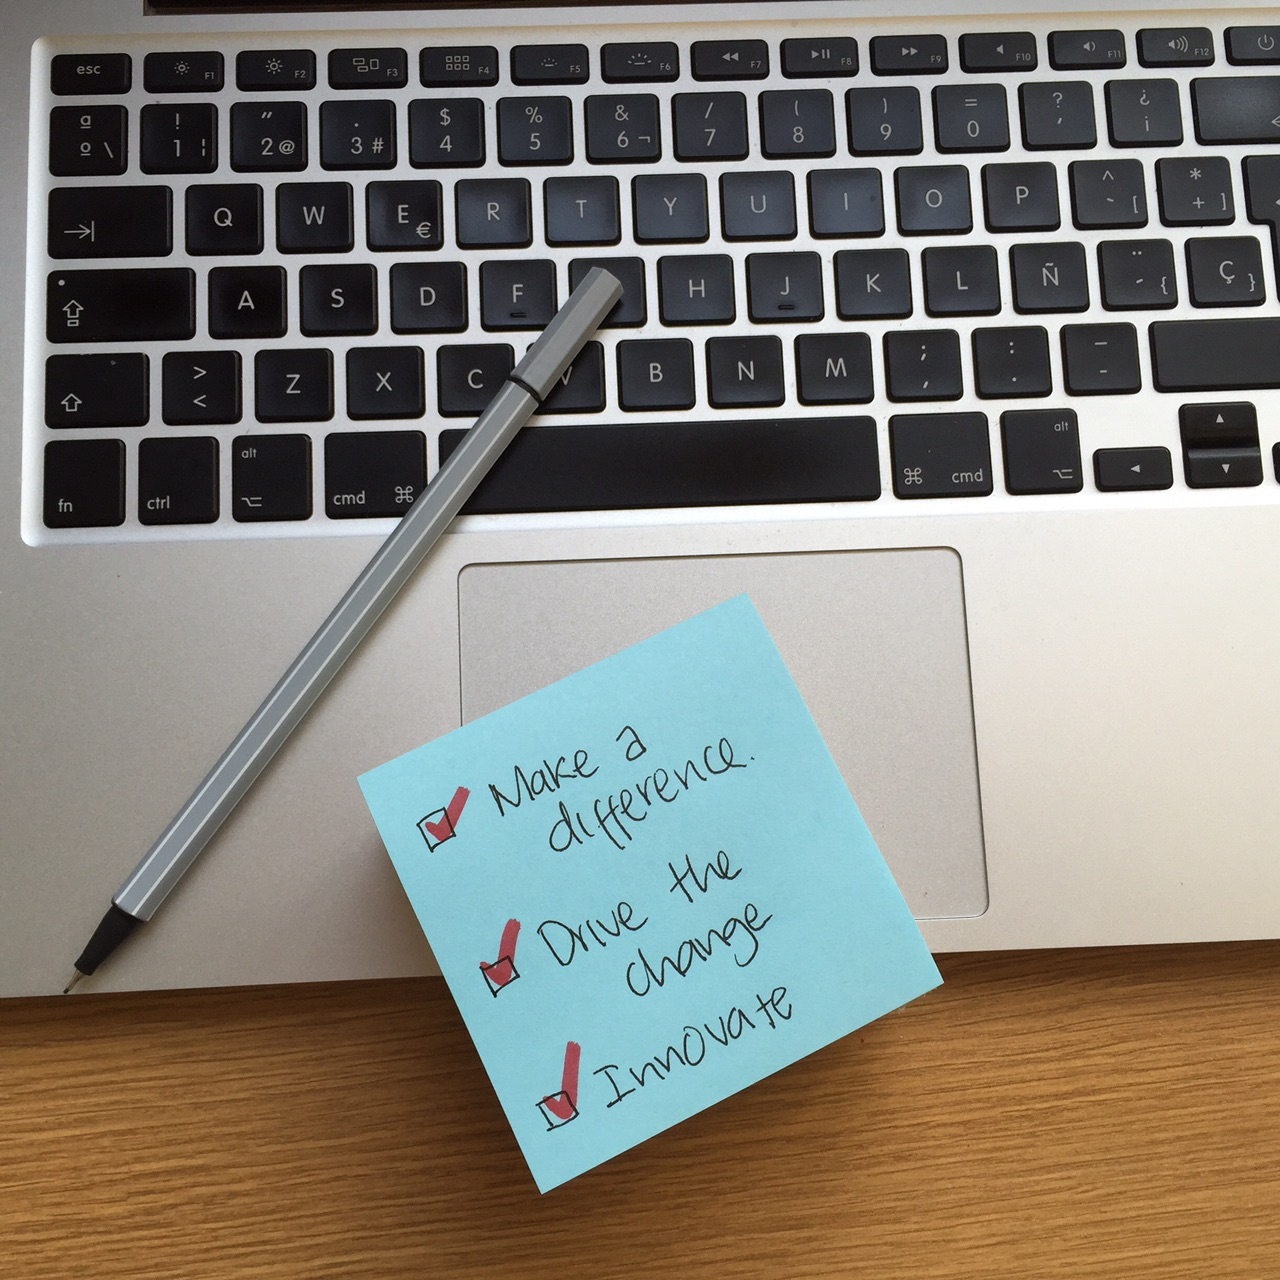 esc F1 F2 F3 F4 F5 F6 F7 F8 F9 F10 F11 F12
ª ! " · $ % & / ( ) = ? ¿
º \ 1 ¦ 2 @ 3 # 4 5 6 ¬ 7 8 9 0 ' ¡
Q W E € R T Y U I O P ^ ` [ * + ]
A S D F H J K L Ñ ¨ ´ { Ç }
> < Z X C V B N M ; , : . _ -
fn ctrl alt cmd ⌘ ⌘ cmd alt
Make a
difference.
Drive the
change
Innovate